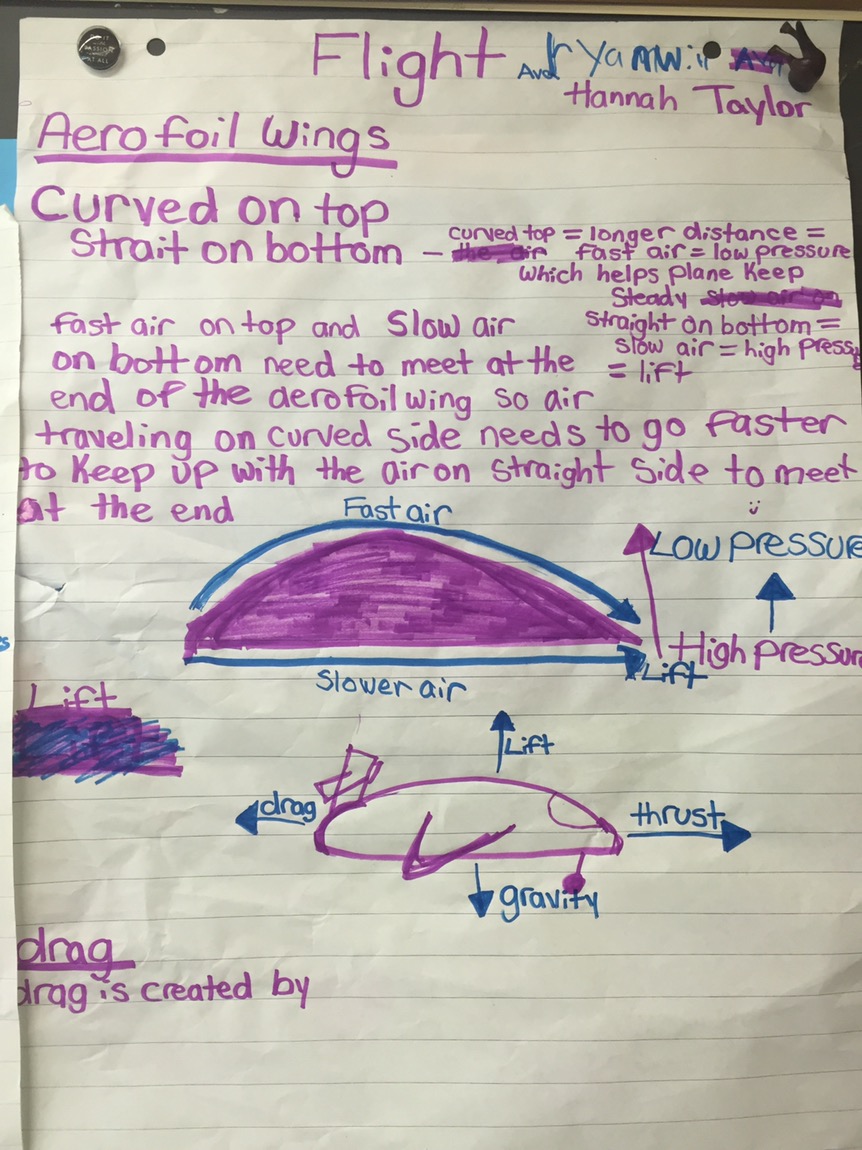 Flight
Hannah Taylor
Aerofoil Wings
Curved on top
Strait on bottom –
curved top = longer distance =
fast air = low pressure
which helps plane keep
steady
straight on bottom =
slow air = high press
= lift
fast air on top and slow air
on bottom need to meet at the
end of the aerofoil wing so air
traveling on curved side needs to go faster
to keep up with the air on straight side to meet
at the end
Fast air
Low pressure
High pressur
Lift
Slower air
Lift
Lift
drag
thrust
gravity
drag
drag is created by